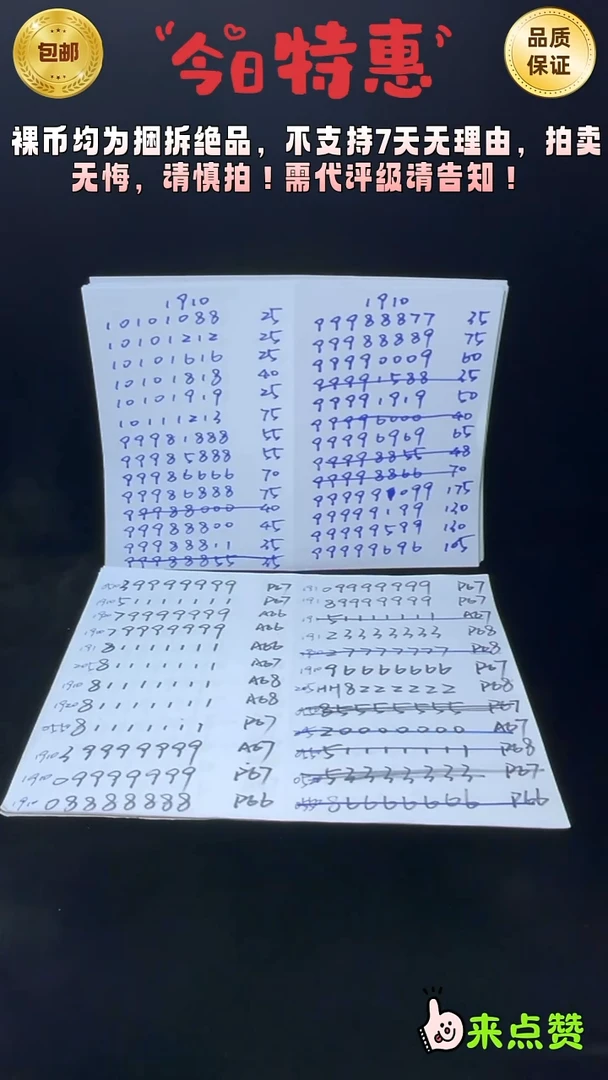 包邮
今日特惠
品质
保证
裸币均为捆拆绝品，不支持7天无理由，拍卖
无悔，请慎拍！需代评级请告知！
1910
10101088 25
10101212 25
10101616 25
10101818 40
10101919 25
10111213 75
99981888 55
99985888 55
99986666 70
99986888 75
99988000 40
99988800 45
99988811 35
99988855 35
1910
99988877 35
99988889 75
99990009 60
99991588 35
99991919 50
99996000 40
99996969 65
99998855 48
99998866 70
99999099 175
99999199 130
99999599 130
99999696 105
39999999 P67
51111111 P67
79999999 A66
79999999 A66
81111111 A66
81111111 A67
1910 81111111 A68
1920 81111111 A68
0520 81111111 P67
1910 39999999 A67
1910 09999999 P67
1910 08888888 P66
09999999 P67
89999999 P67
51111111 A67
23333333 P68
27777777 P68
96666666 P67
8222222 P68
85555555 P67
20000000 A67
51111111 P68
53333333 P67
86666666 P66
来点赞